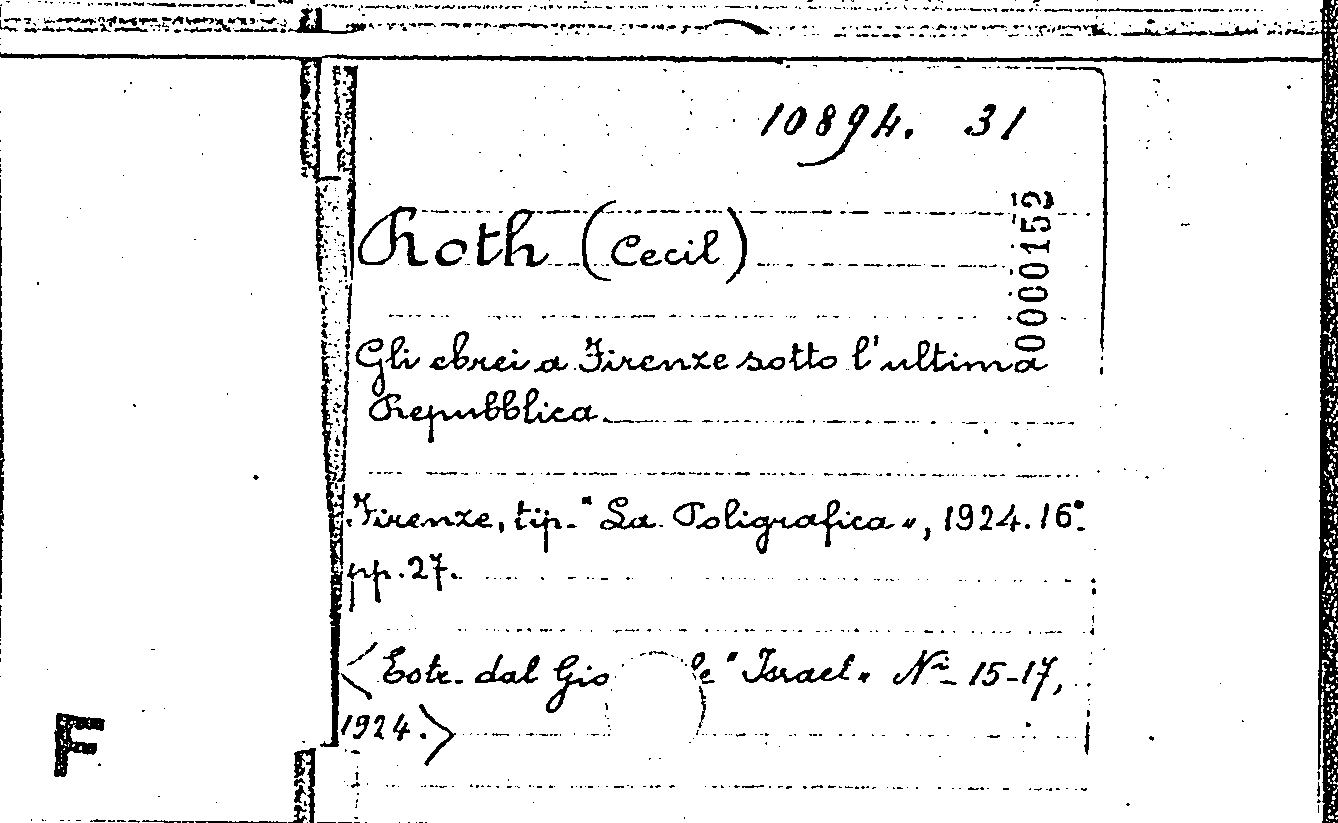 10894. 31
0000152
Roth (Cecil)
Gli ebrei a Firenze sotto l'ultima
Repubblica.
Firenze, tip. "La Poligrafica", 1924. 16°.
pp. 27.
<Estr. dal "Israel" Nⁱ 15-17,
1924.>
F